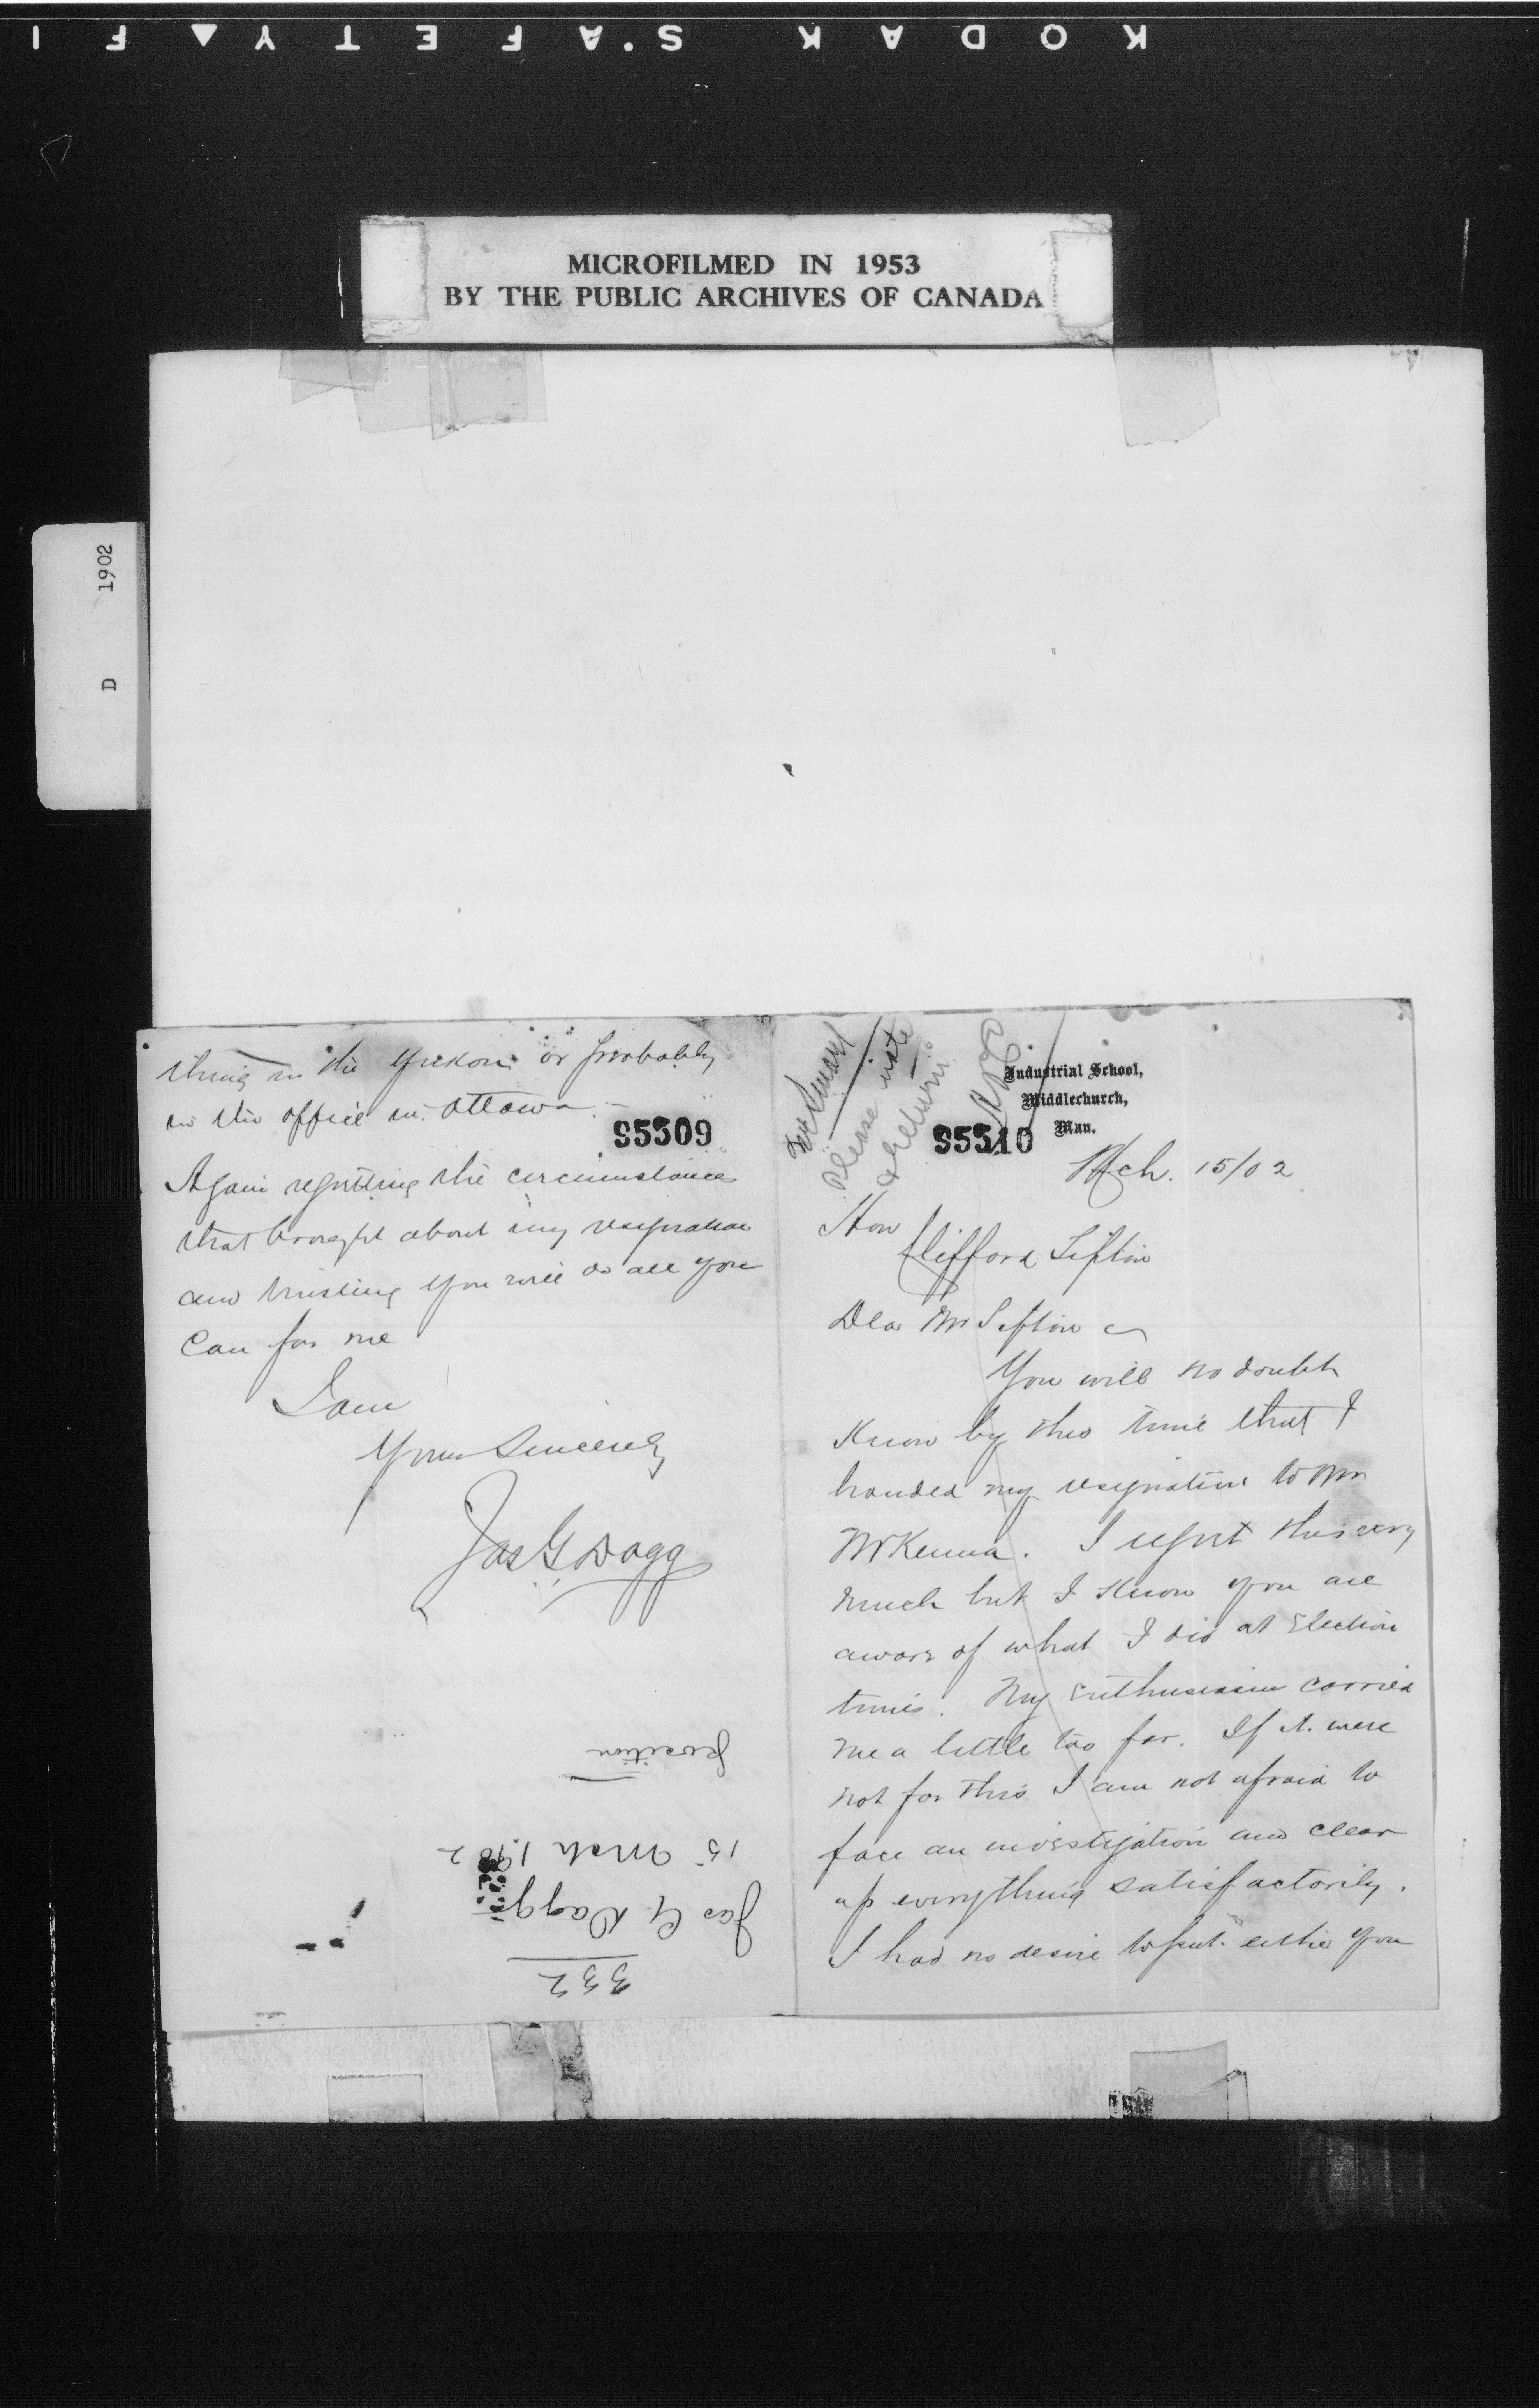 KODAK SAFETY FI
MICROFILMED IN 1953
BY THE PUBLIC ARCHIVES OF CANADA
D 1902
thing in the Yukon or probably
in the office in Ottawa.
95309
Again regretting the circumstances
that brought about my resignation
and trusting you will do all you
can for me
I am
Yours Sincerely
Jas G Dagg
332
Jas G. Dagg
15 Mch 1902
position
Mr Smart
Please note
& return
95310
Industrial School,
Middlechurch,
Man.
Mch. 15/02
Hon
Clifford Sifton
Dear Mr Sifton
You will no doubt
Know by this time that I
handed my resignation to Mr
McKenna. I regret this very
much but I Know you are
aware of what I did at Election
times. My Enthusiasm carried
me a little too far. If it were
not for this I am not afraid to
face an investigation and clear
up everything satisfactorily.
I had no desire to put either you